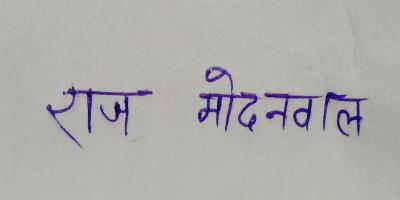 राज मोदनवाल